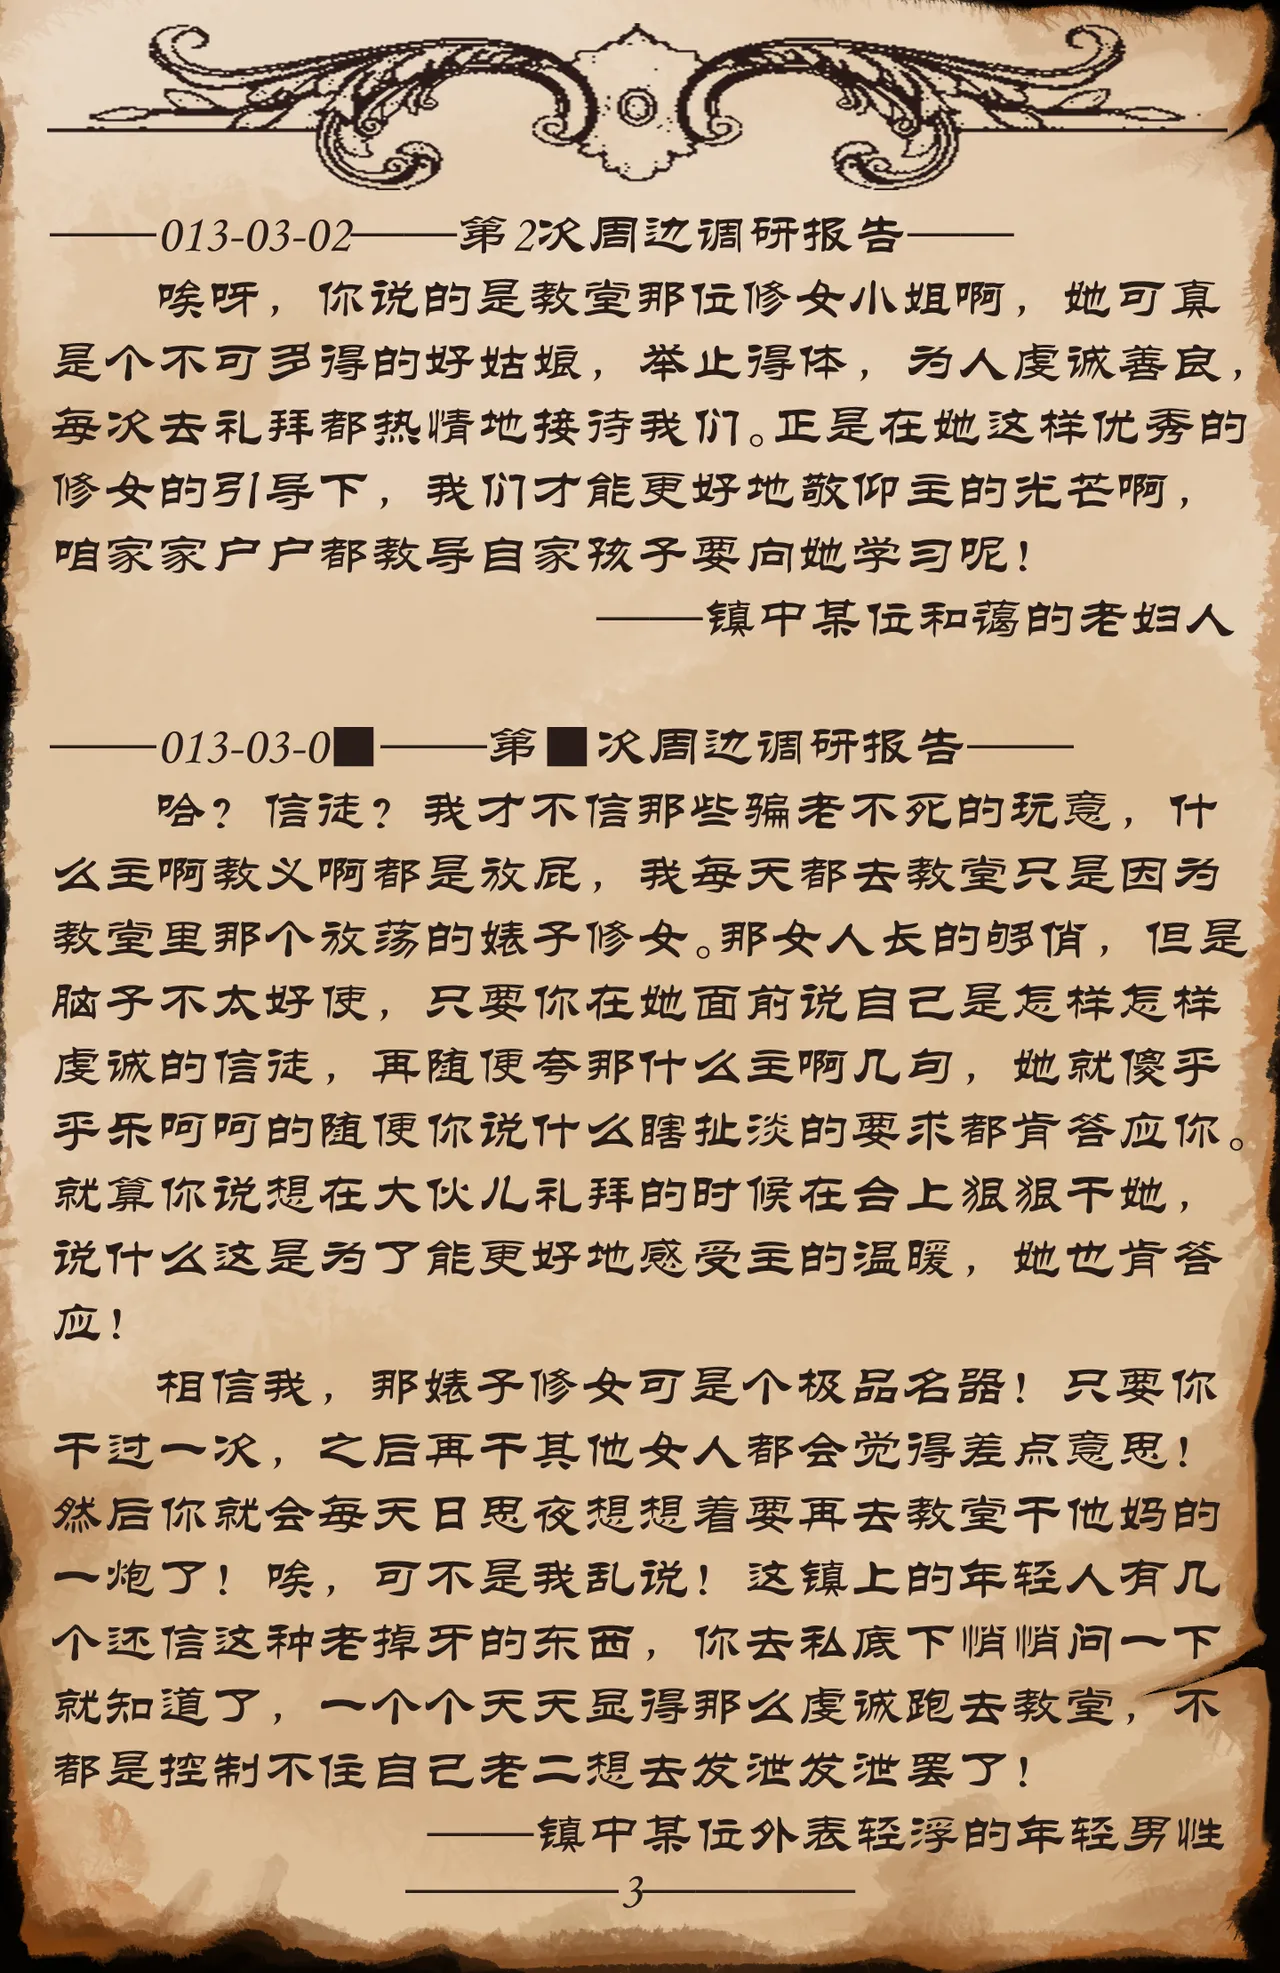 ——013-03-02——第2次周边调研报告——
唉呀，你说的是教堂那位修女小姐啊，她可真
是个不可多得的好姑娘，举止得体，为人虔诚善良，
每次去礼拜都热情地接待我们。正是在她这样优秀的
修女的引导下，我们才能更好地敬仰主的光芒啊，
咱家家户户都教导自家孩子要向她学习呢！
——镇中某位和蔼的老妇人
——013-03-0■——第■次周边调研报告——
哈？信徒？我才不信那些骗老不死的玩意，什
么主啊教义啊都是放屁，我每天都去教堂只是因为
教堂里那个放荡的婊子修女。那女人长的够俏，但是
脑子不太好使，只要你在她面前说自己是怎样怎样
虔诚的信徒，再随便夸那什么主啊几句，她就傻乎
乎乐呵呵的随便你说什么瞎扯淡的要求都肯答应你。
就算你说想在大伙儿礼拜的时候在台上狠狠干她，
说什么这是为了能更好地感受主的温暖，她也肯答
应！
相信我，那婊子修女可是个极品名器！只要你
干过一次，之后再干其他女人都会觉得差点意思！
然后你就会每天日思夜想想着要再去教堂干他妈的
一炮了！唉，可不是我乱说！这镇上的年轻人有几
个还信这种老掉牙的东西，你去私底下悄悄问一下
就知道了，一个个天天显得那么虔诚跑去教堂，不
都是控制不住自己老二想去发泄发泄罢了！
——镇中某位外表轻浮的年轻男性
————3————